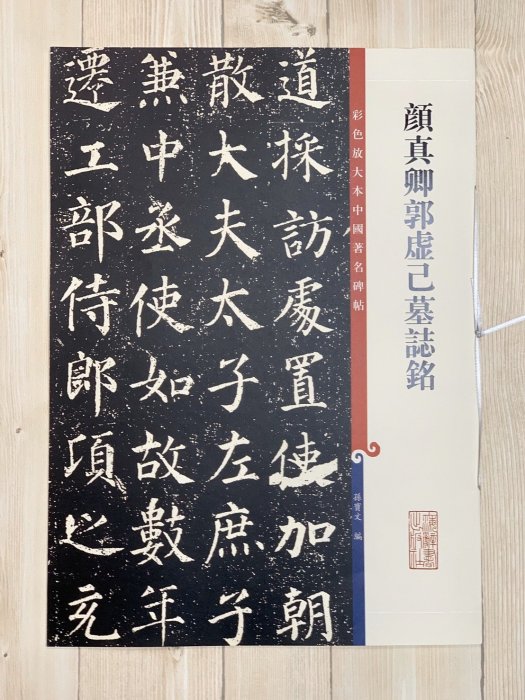 顔真卿郭虚己墓誌銘
彩色放大本中國著名碑帖
孫寶文 編
道採訪處置使加朝
散大夫太子左庶子
兼中丞使如故數年
遷工部侍郎頃之充